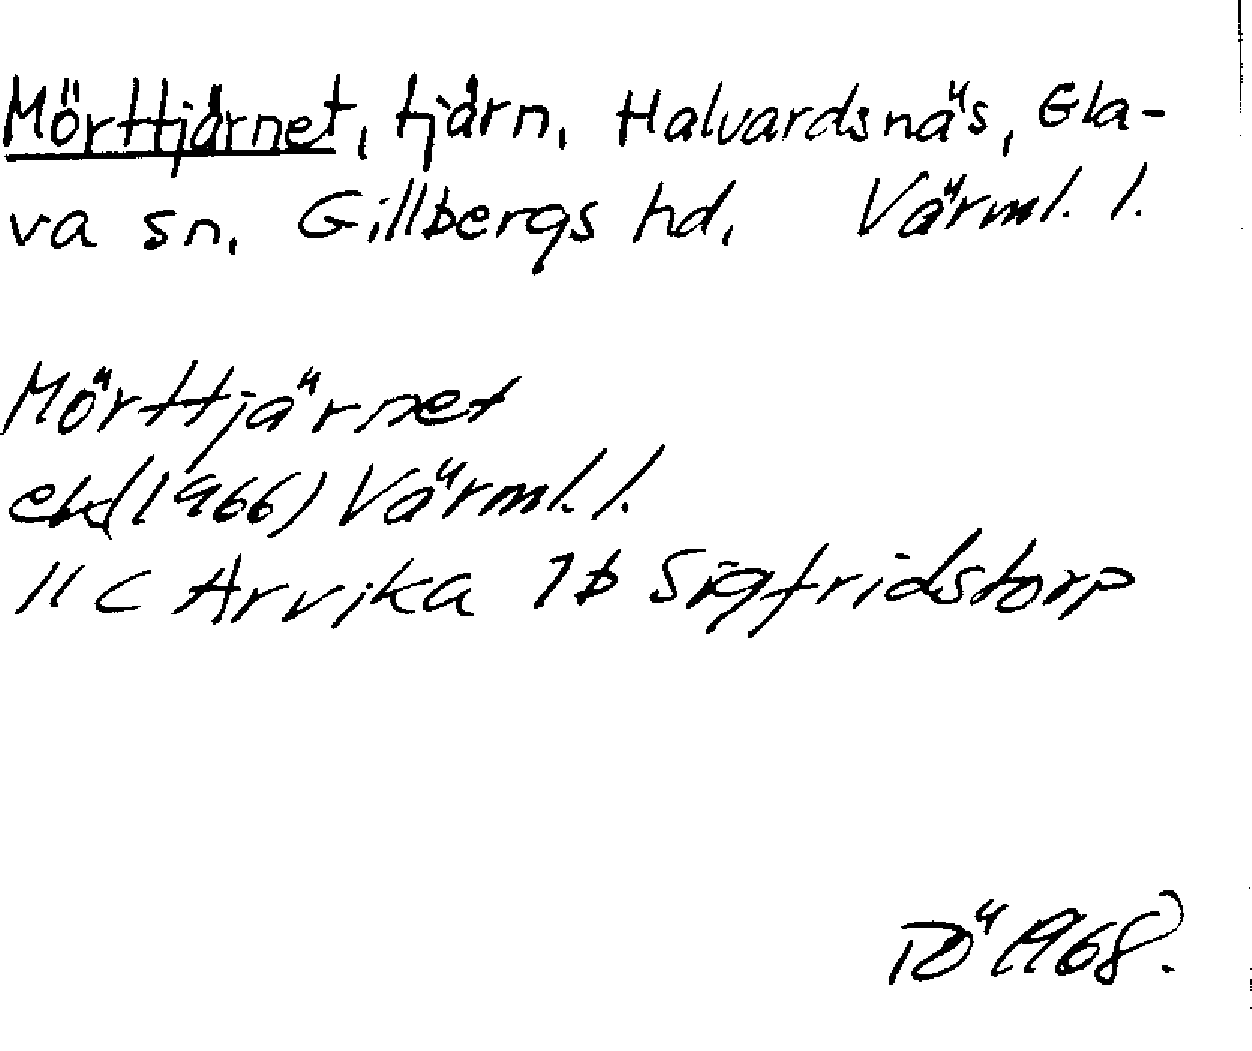 Mörttjärnet, tjärn, Halvardsnäs, Gla-
va sn, Gillbergs hd, Värml. l.
Mörttjärnet
ek (1966) Värml. l.
11 C Arvika 7b Sigfridstorp
DÖ 1968.